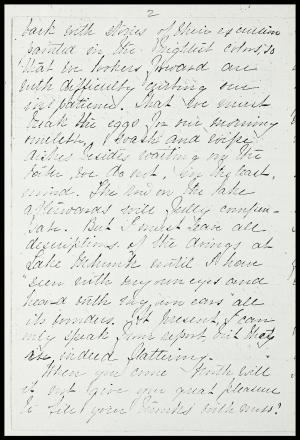 2
back with stories of their execution
painted in the brightest colors, so
that we lookers forward are
with difficulty curbing our
impatience. That we must
break the eggs for our morning
omelette, & wash and wipe
dishes besides waiting on the
table, we do not, in the least,
mind. The row on the lake
afterwards will fully compen-
sate. But I must leave all
descriptions of the doings at
Lake until I have
"seen with my own eyes and
heard with my own ears" all
its wonders. At present, I can
only speak from report, but that
is indeed flattering.
When you come North will
it not give you great pleasure
to file your trunks with ours?